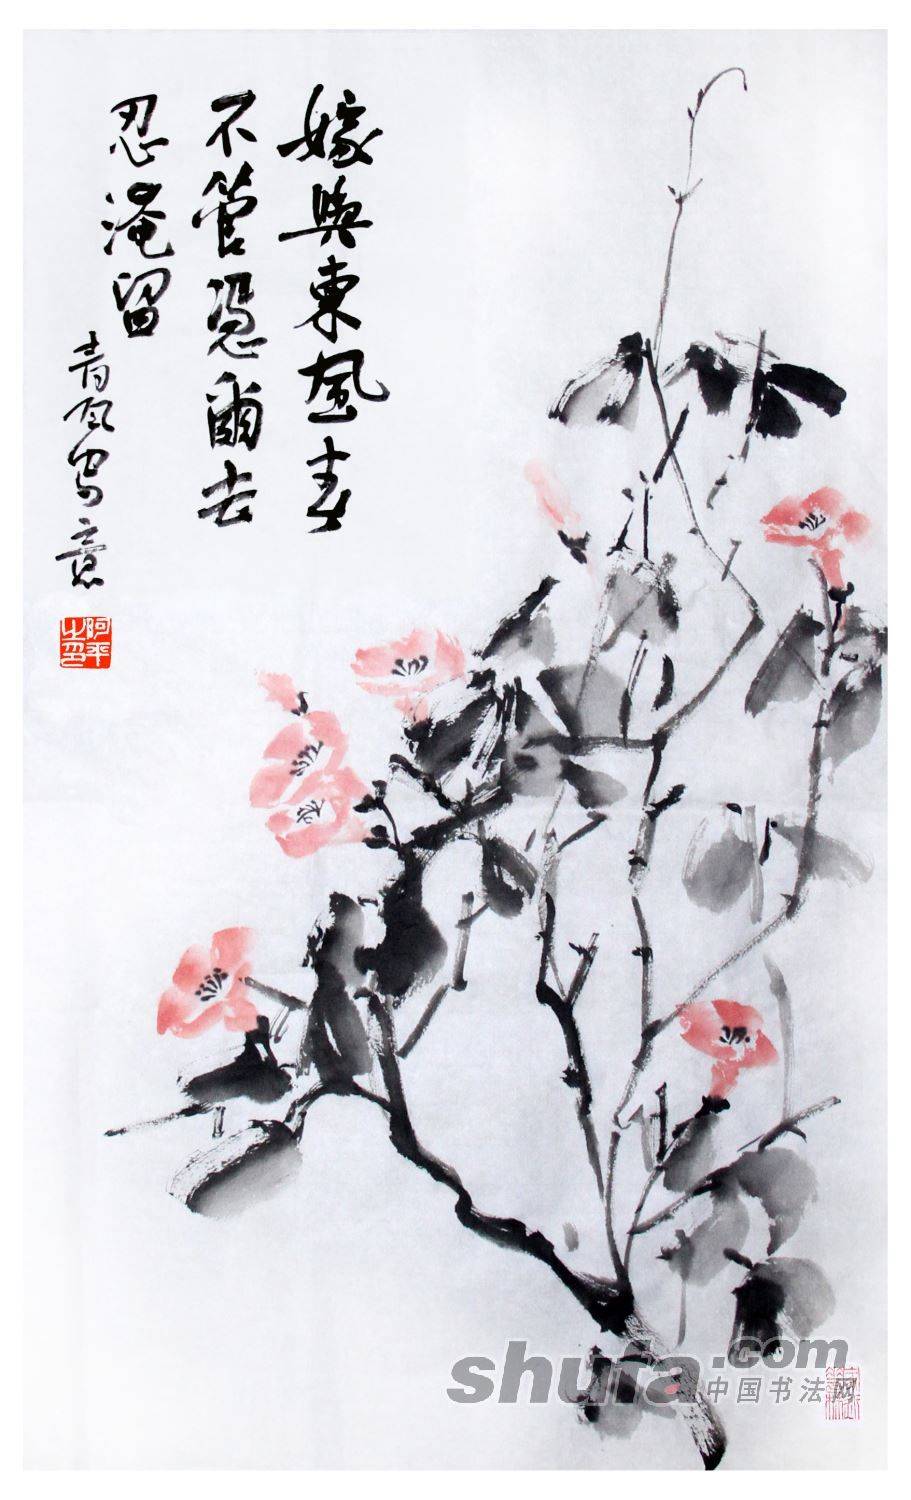 嫁與東風春
不管憑爾去
忍淹留
青風寫意
阿平之印
shufa.com
中国书法网